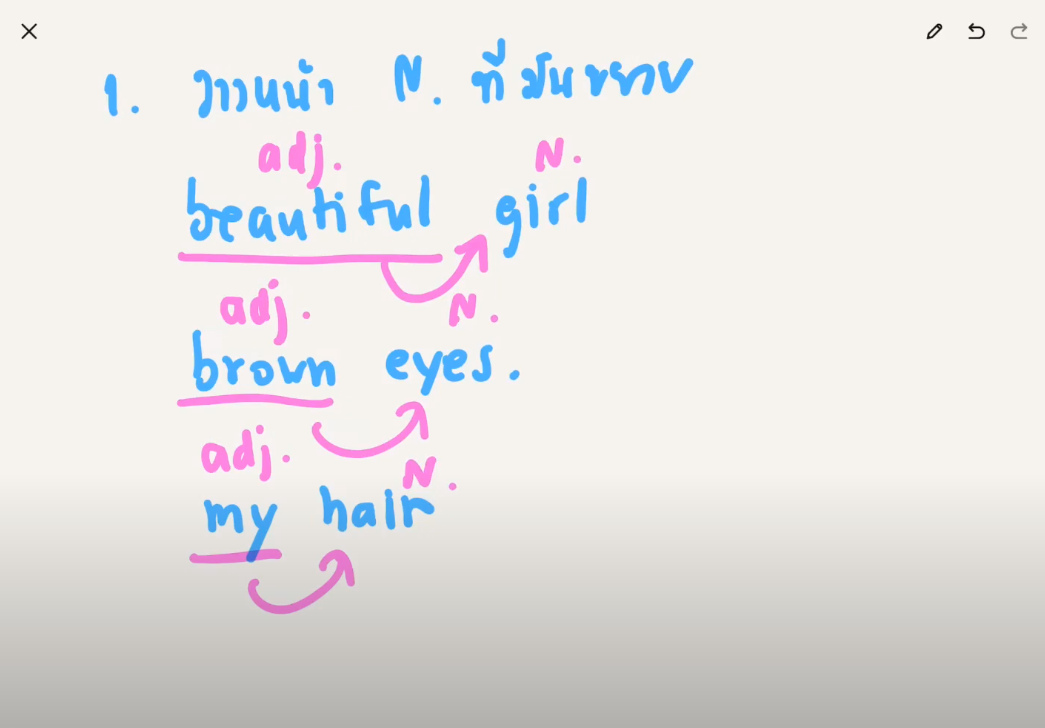 1. วางหน้า N. ที่มันขยาย
adj. N.
beautiful girl
adj. N.
brown eyes.
adj. N.
my hair